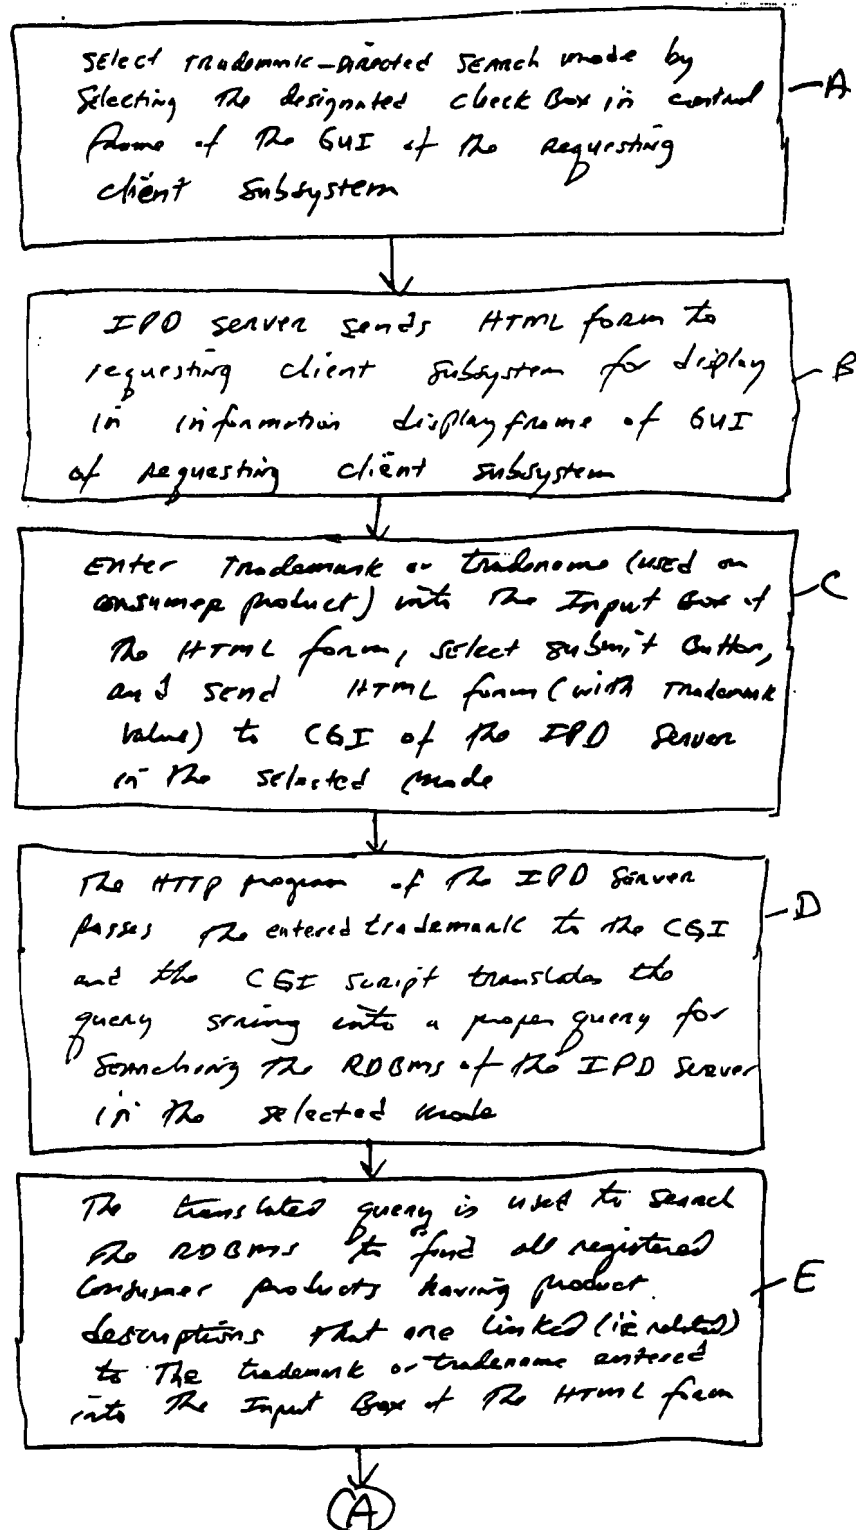 Select Trademark-Directed Search mode by
Selecting the designated Check Box in control
frame of the GUI of the requesting
client Subsystem
A
IPD server sends HTML form to
requesting client subsystem for display
in information display frame of GUI
of requesting client subsystem
B
Enter Trademark or tradename (used on
consumer product) into the Input Box of
the HTML form, select submit Button,
and send HTML form (with Trademark
value) to CGI of the IPD Server
in the selected mode
C
The HTTP program of the IPD Server
passes the entered trademark to the CGI
and the CGI script translates the
query string into a proper query for
Searching the RDBMS of the IPD Server
in the selected mode
D
The translated query is used to search
the RDBMS to find all registered
Consumer products having product
descriptions that are linked (ie related)
to the trademark or tradename entered
into the Input Box of the HTML form
E
A